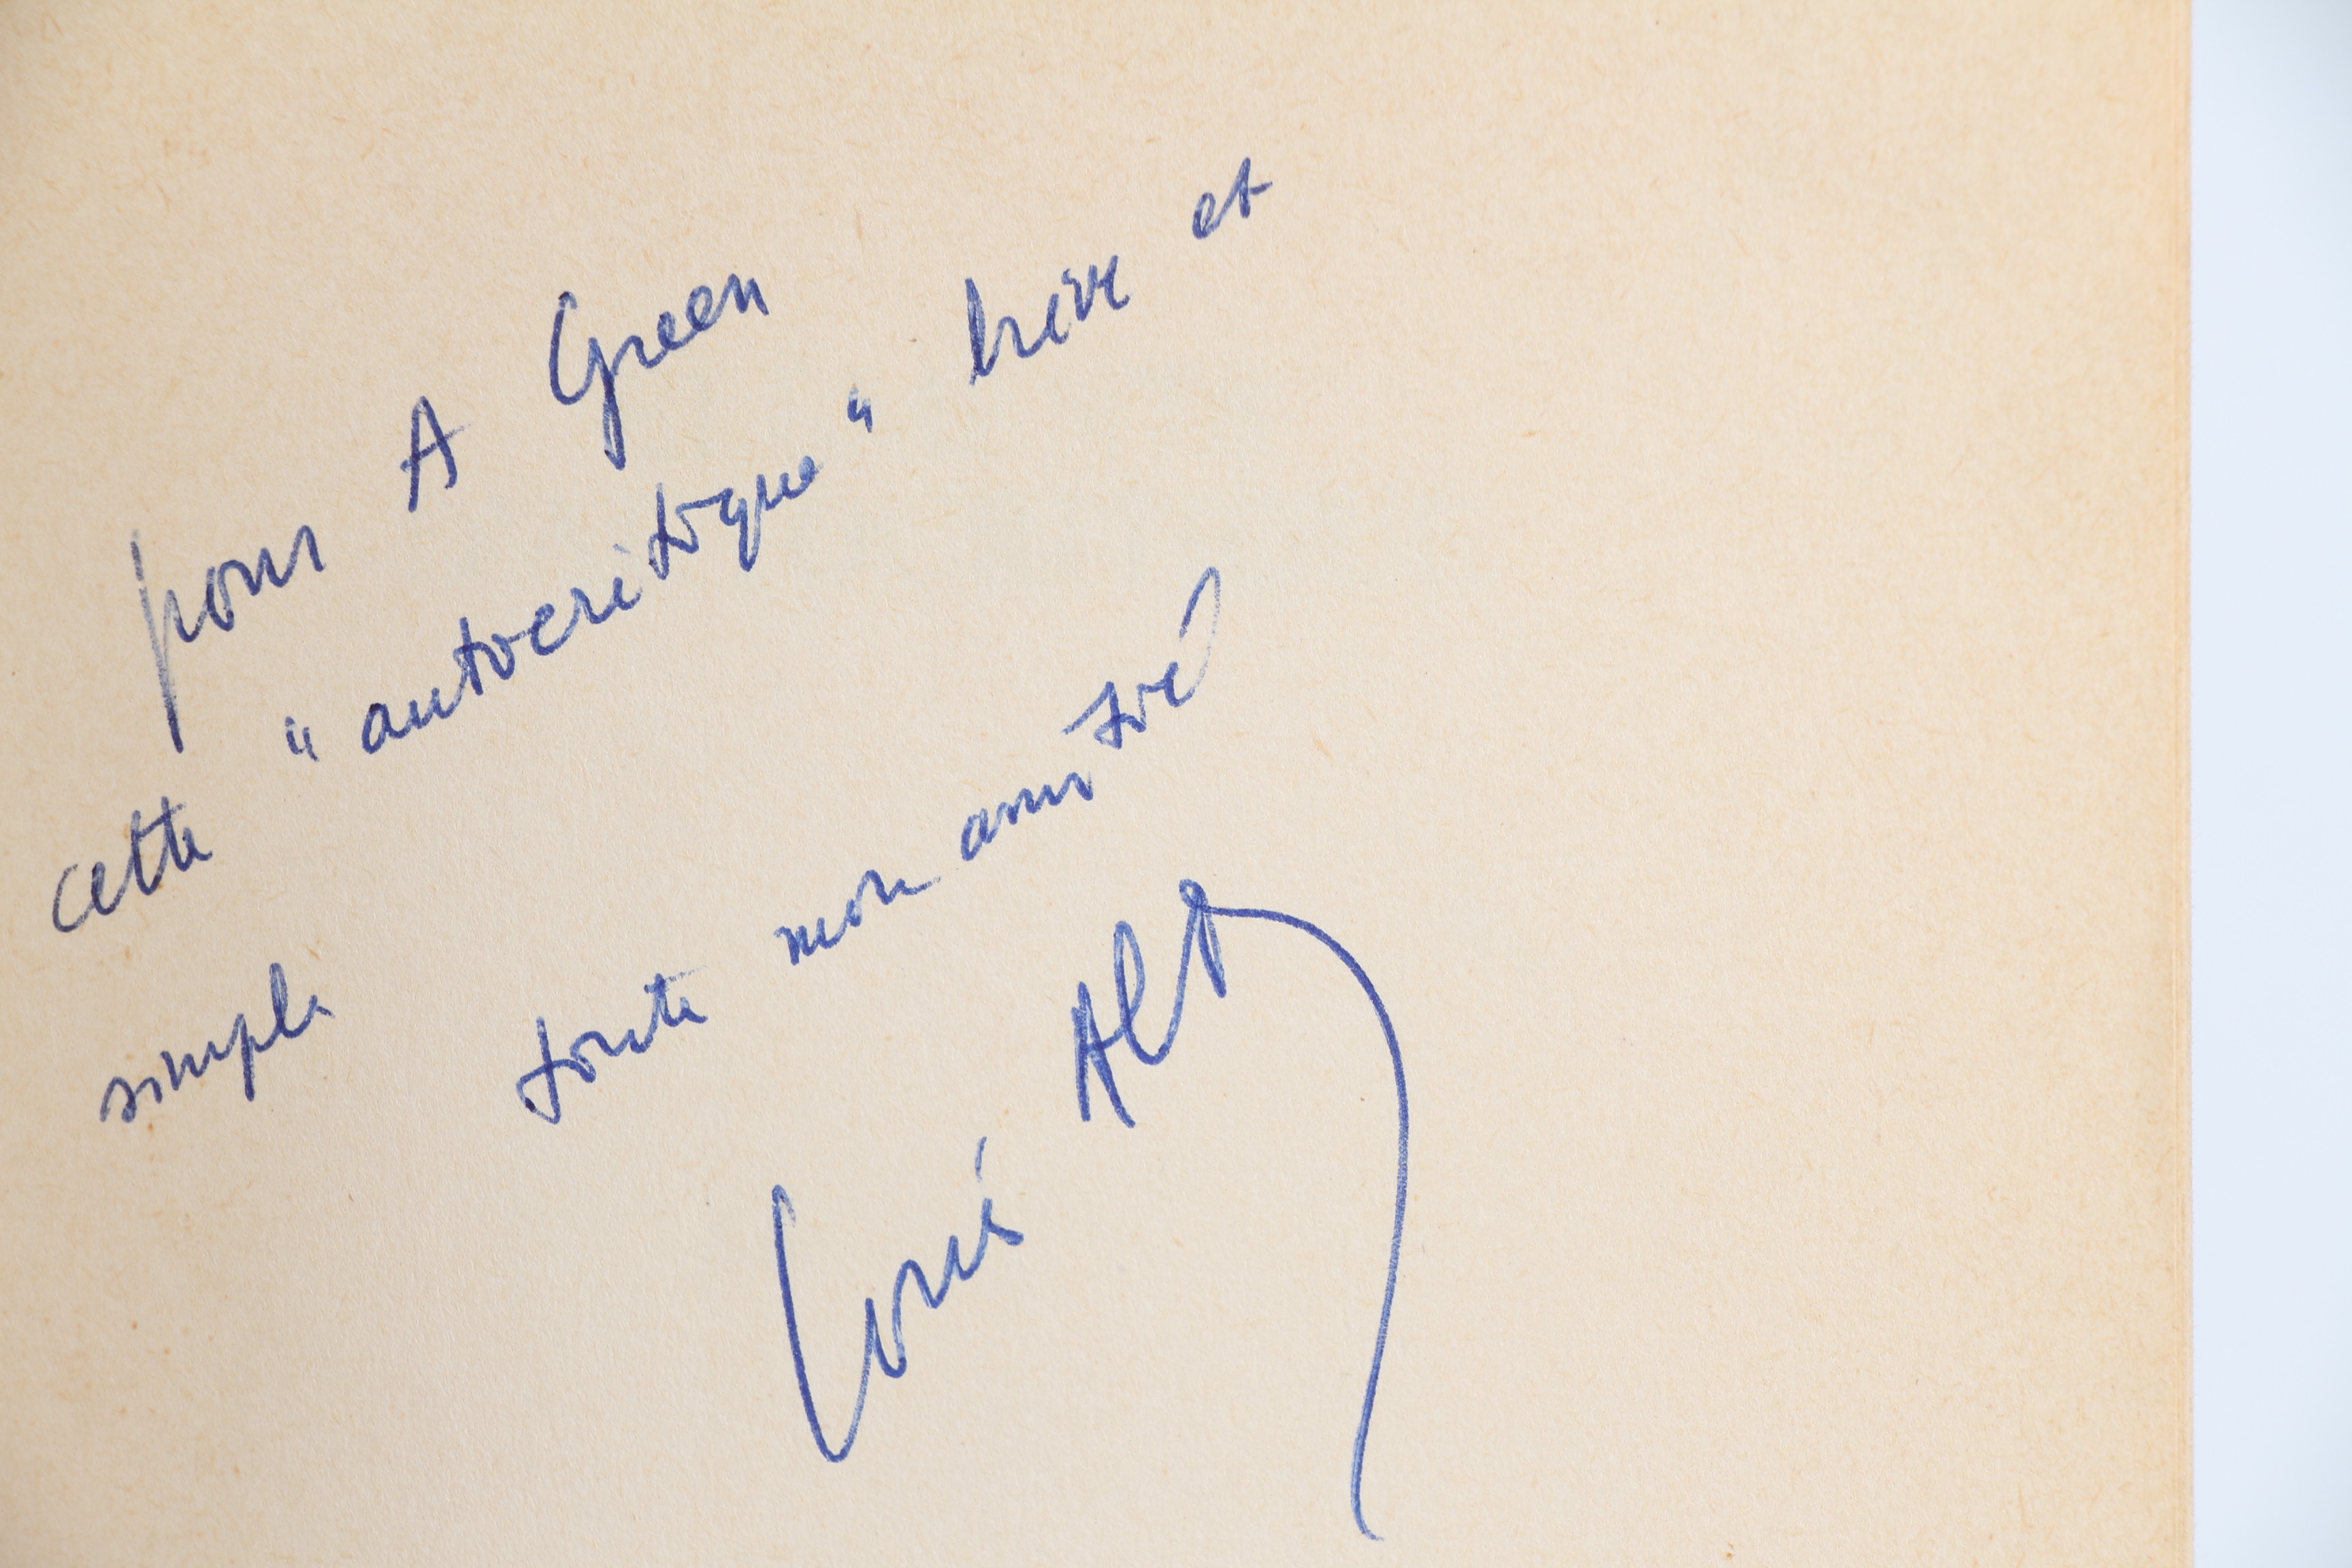 pour A Green
cette "autocritique" brève et
simple
toute mon amitié
Louis Alt